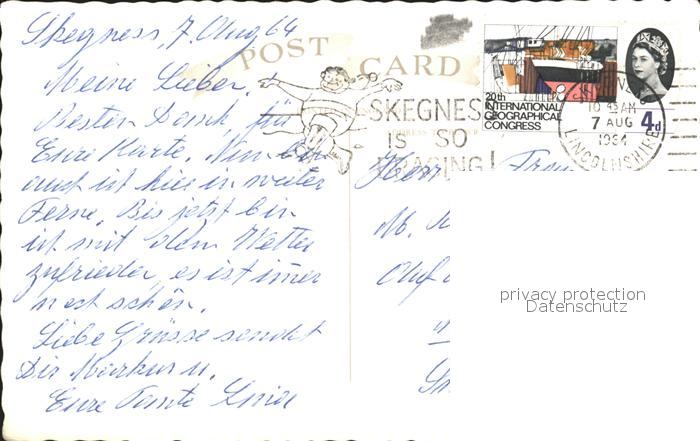 Skegness, 7. Aug 64
POST CARD
Meine Lieben,
Besten Dank für
Eure Karte. Nun bin
auch ich hier in weiter
Ferne. Bis jetzt bin
ich mit dem Wetter
zufrieden, es ist immer
recht schön.
Liebe Grüsse sendet
Dir Markus u.
Eure Tante
SKEGNES
IS SO
BRACING!
20th
INTERNATIONAL
GEOGRAPHICAL
CONGRESS
4d
10 45 AM
7 AUG
1964
LINCOLNSHIRE
Herr
M.
privacy protection
Datenschutz